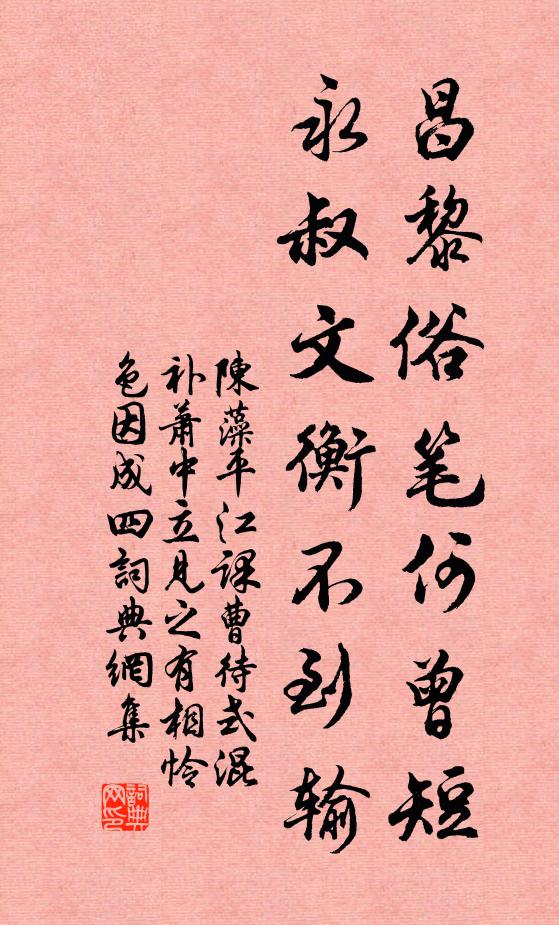 昌黎俗笔何曾短
永叔文衡不到输
陳藻平江课曹待试混
补萧中立見之有相怜
色因成四詞典網集
詞典网印